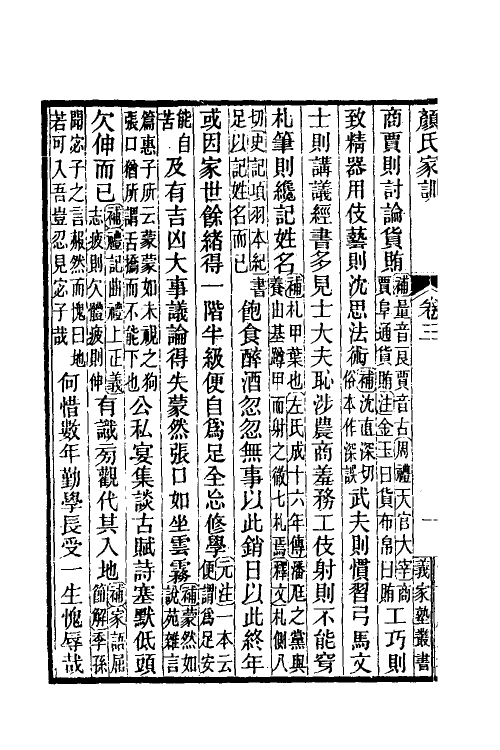 顏氏家訓
卷三
一
義家塾叢書
商賈則討論貨賄補量音良賈音古周禮天官大宰商賈阜通貨賄注金玉曰貨布帛曰賄工巧則
致精器用伎藝則沈思法術補沈直深切俗本作深誤武夫則慣習弓馬文
士則講議經書多見士大夫恥涉農商羞務工伎射則不能穿
札筆則纔記姓名補札甲葉也左氏成十六年傳潘尫之黨與養由基蹲甲而射之徹七札焉釋文札側八
切史記項羽本紀書足以記姓名而已飽食醉酒忽忽無事以此銷日以此終年
或因家世餘緒得一階半級便自為足全忘修學元注一本云便謂為足安
能自苦及有吉凶大事議論得失蒙然張口如坐雲霧補蒙然如說苑雜言
篇惠子所云蒙蒙如未視之狗張口猶所謂舌撟而不能下也公私宴集談古賦詩塞默低頭
欠伸而已補禮記曲禮上正義志疲則欠體疲則伸有識旁觀代其入地補家語屈節解季孫
聞宓子之言赧然而愧曰地若可入吾豈忍見宓子哉何惜數年勤學長受一生愧辱哉